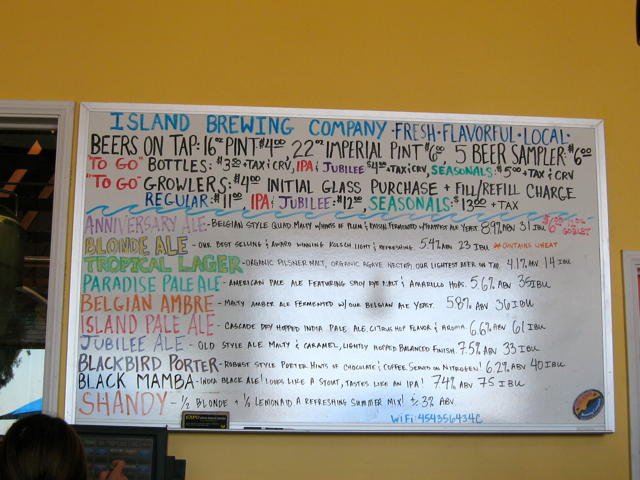 ISLAND BREWING COMPANY · FRESH · FLAVORFUL · LOCAL ·
BEERS ON TAP: 16oz PINT $4.00 22oz IMPERIAL PINT $6.00, 5 BEER SAMPLER: $6.00
"TO GO" BOTTLES: $3.50 + TAX & CRV, IPA & JUBILEE $4.50 + TAX & CRV, SEASONALS: $5.00 + TAX & CRV
"TO GO" GROWLERS: $4.00 INITIAL GLASS PURCHASE + FILL/REFILL CHARGE
REGULAR: $11.00, IPA & JUBILEE: $12.00, SEASONALS: $13.00 + TAX
ANNIVERSARY ALE - BELGIAN STYLE QUAD MALTY W/HINTS OF PLUM & RAISIN, FERMENTED W/TRAPPIST ALE YEAST. 8.9% ABV 31 IBU
GOBLET
BLONDE ALE - OUR BEST SELLING & AWARD WINNING KOLSCH LIGHT & REFRESHING. 5.4% ABV 23 IBU *CONTAINS WHEAT
TROPICAL LAGER - ORGANIC PILSNER MALT, ORGANIC AGAVE NECTAR, OUR LIGHTEST BEER ON TAP. 4.1% ABV 14 IBU
PARADISE PALE ALE - AMERICAN PALE ALE FEATURING SPICY RYE MALT & AMARILLO HOPS. 5.6% ABV 35 IBU
BELGIAN AMBRE - MALTY AMBER ALE FERMENTED W/ OUR BELGIAN ALE YEAST. 5.8% ABV 36 IBU
ISLAND PALE ALE - CASCADE DRY HOPPED INDIA PALE ALE, CITRUS HOP FLAVOR & AROMA. 6.6% ABV 61 IBU
JUBILEE ALE - OLD STYLE ALE MALTY & CARAMEL, LIGHTLY HOPPED BALANCED FINISH. 7.5% ABV 33 IBU
BLACKBIRD PORTER - ROBUST STYLE PORTER HINTS OF CHOCOLATE & COFFEE SERVED ON NITROGEN! 6.2% ABV 40 IBU
BLACK MAMBA - INDIA BLACK ALE! LOOKS LIKE A STOUT, TASTES LIKE AN IPA! 7.4% ABV 75 IBU
SHANDY - 1/2 BLONDE + 1/2 LEMONAID A REFRESHING SUMMER MIX! ± 3% ABV
WIFI: 454356434C
EXPO